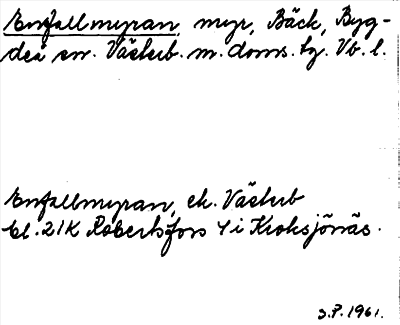 Enfallmyran, myr, Bäck, Byg-
deå sn. Västerb. m. doms. hg. Vb. l.
Enfallmyran, ek. Västerb
bl. 21K Robertsfors 4 i Kroksjönäs.
S.P. 1961.